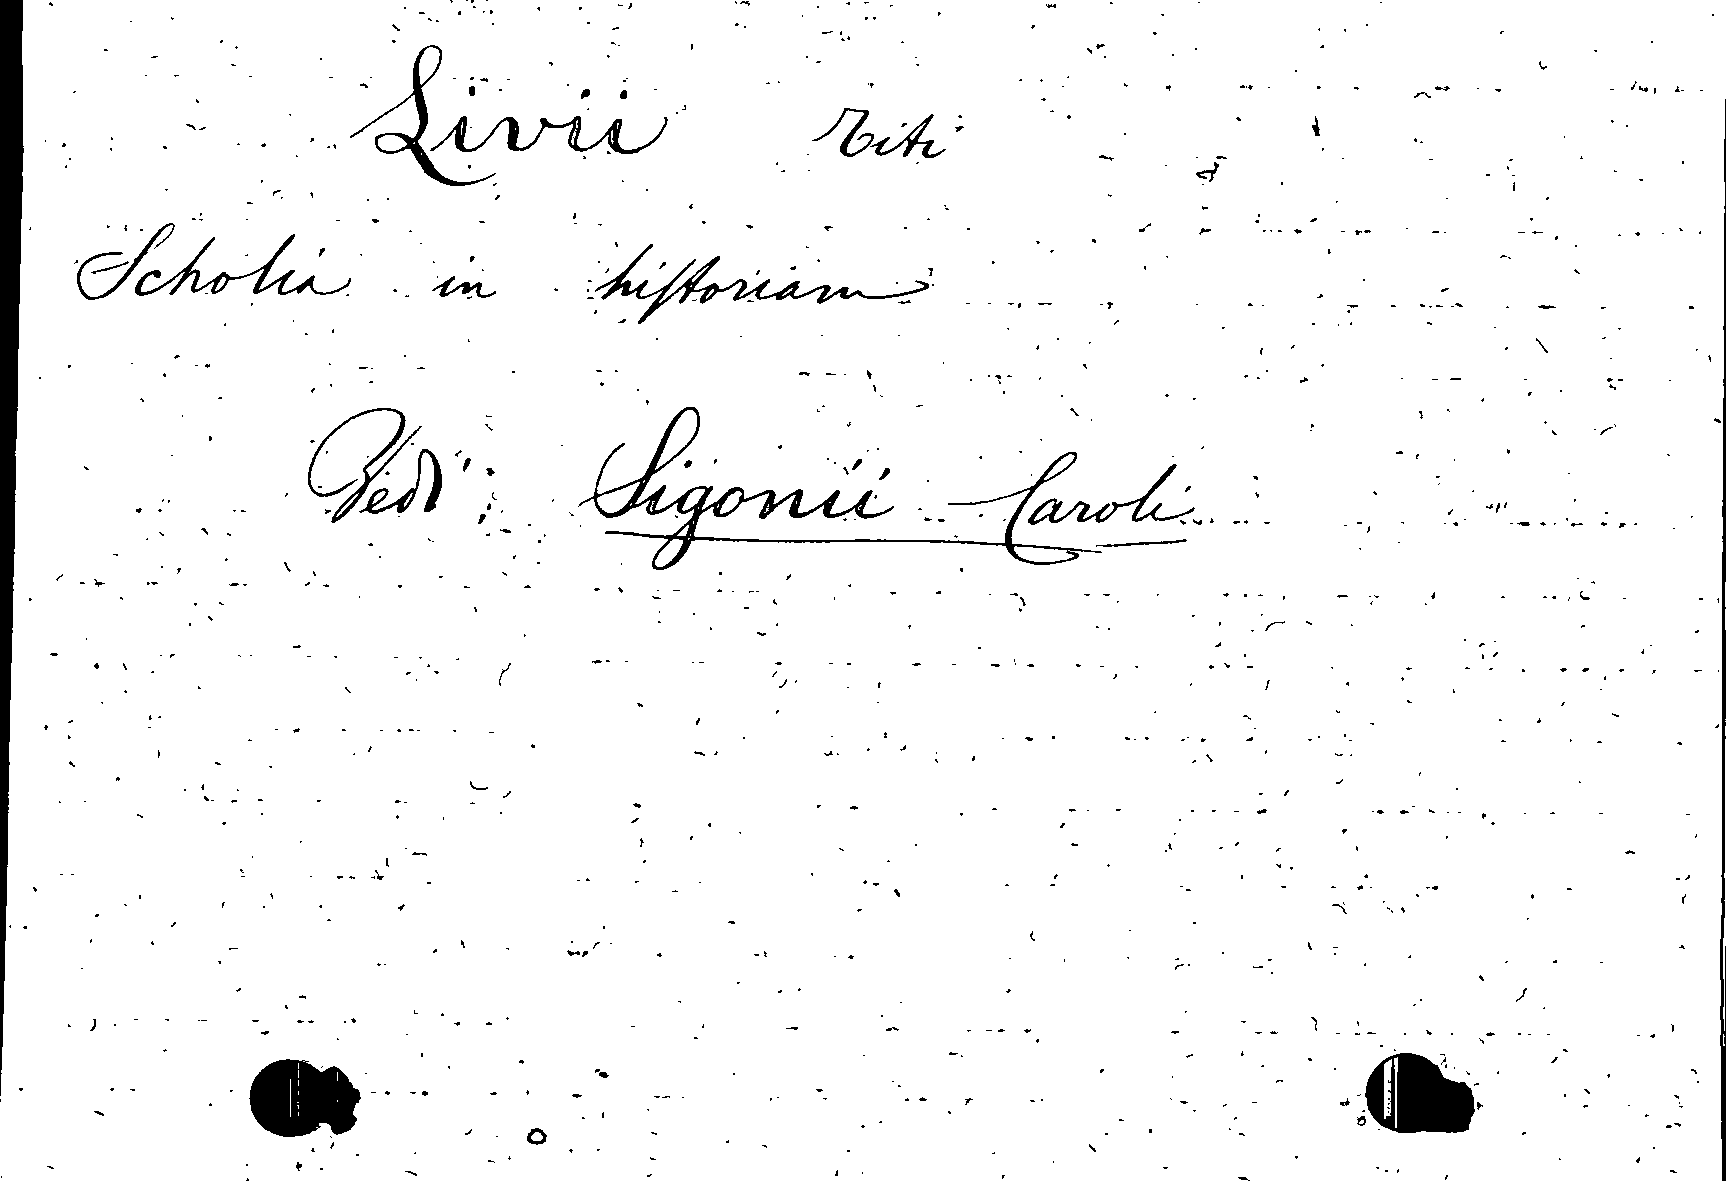 Livii Titi
Scholia in hiſtoriam
Vedi: Sigonii Caroli